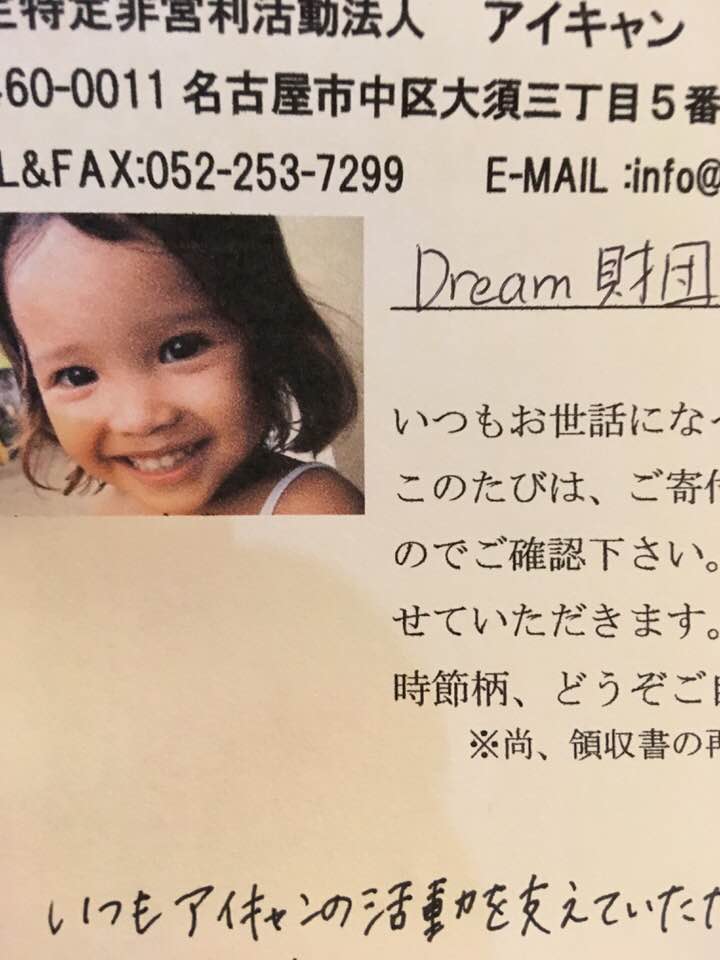 定特定非営利活動法人 アイキャン
460-0011 名古屋市中区大須三丁目5番
L&FAX:052-253-7299 E-MAIL :info@
Dream 財団
いつもお世話になっ
このたびは、ご寄付
のでご確認下さい。
せていただきます。
時節柄、どうぞご自
※尚、領収書の再
いつもアイキャンの活動を支えていただ